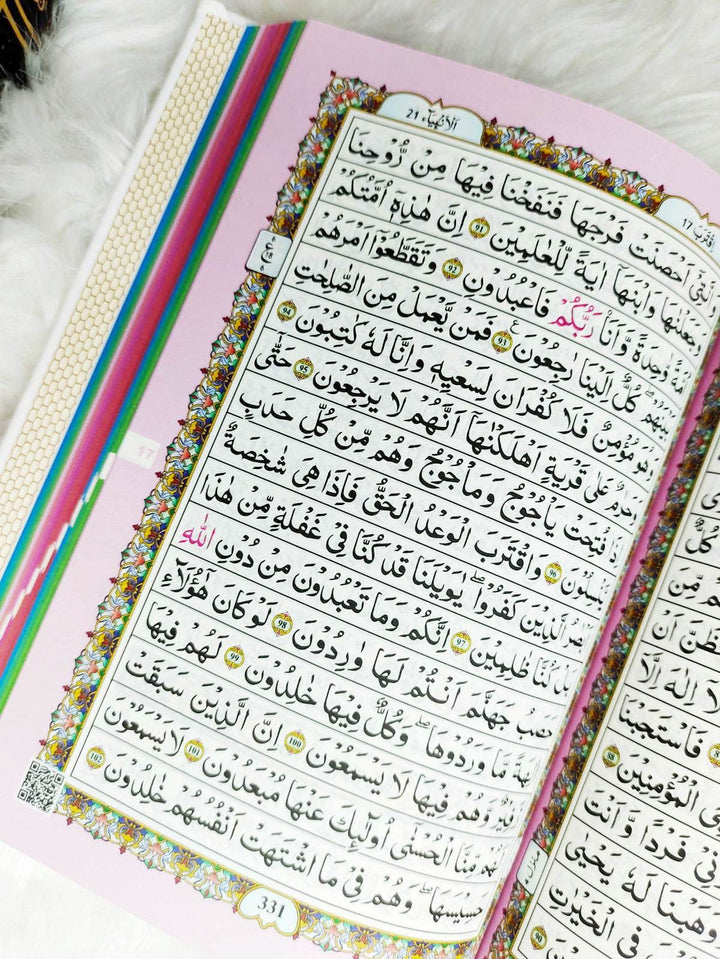 اَلْاَنْۢبِیَآء 21
اِقْتَرَبَ 17
الَّتِیْۤ اَحْصَنَتْ فَرْجَهَا فَنَفَخْنَا فِیْهَا مِنْ رُّوْحِنَا
وَجَعَلْنٰهَا وَابْنَهَاۤ اٰیَةً لِّلْعٰلَمِیْنَ 91 اِنَّ هٰذِهٖۤ اُمَّتُكُمْ
اُمَّةً وَّاحِدَةً وَّاَنَا رَبُّكُمْ فَاعْبُدُوْنِ 92 وَتَقَطَّعُوْۤا اَمْرَهُمْ
بَیْنَهُمْ ؕ كُلٌّ اِلَیْنَا رٰجِعُوْنَ 93 فَمَنْ یَّعْمَلْ مِنَ الصّٰلِحٰتِ
وَهُوَ مُؤْمِنٌ فَلَا كُفْرَانَ لِسَعْیِهٖ وَاِنَّا لَهٗ كٰتِبُوْنَ 94
وَحَرٰمٌ عَلٰی قَرْیَةٍ اَهْلَكْنٰهَاۤ اَنَّهُمْ لَا یَرْجِعُوْنَ 95 حَتّٰۤی
اِذَا فُتِحَتْ یَاْجُوْجُ وَمَاْجُوْجُ وَهُمْ مِّنْ كُلِّ حَدَبٍ
یَّنْسِلُوْنَ 96 وَاقْتَرَبَ الْوَعْدُ الْحَقُّ فَاِذَا هِیَ شَاخِصَةٌ
اَبْصَارُ الَّذِیْنَ كَفَرُوْا ؕ یٰوَیْلَنَا قَدْ كُنَّا فِیْ غَفْلَةٍ مِّنْ هٰذَا
بَلْ كُنَّا ظٰلِمِیْنَ 97 اِنَّكُمْ وَمَا تَعْبُدُوْنَ مِنْ دُوْنِ اللّٰهِ
حَصَبُ جَهَنَّمَ ؕ اَنْتُمْ لَهَا وٰرِدُوْنَ 98 لَوْ كَانَ هٰۤؤُلَآءِ
اٰلِهَةً مَّا وَرَدُوْهَا ؕ وَكُلٌّ فِیْهَا خٰلِدُوْنَ 99 لَهُمْ فِیْهَا
زَفِیْرٌ وَّهُمْ فِیْهَا لَا یَسْمَعُوْنَ 100 اِنَّ الَّذِیْنَ سَبَقَتْ
لَهُمْ مِّنَّا الْحُسْنٰۤی ۙ اُولٰٓىِٕكَ عَنْهَا مُبْعَدُوْنَ 101 لَا یَسْمَعُوْنَ
حَسِیْسَهَا ۚ وَهُمْ فِیْ مَا اشْتَهَتْ اَنْفُسُهُمْ خٰلِدُوْنَ 102
331
17
كُلٌّ
هُمْ مِّنَ
فَظَنَّ اَنْ
لَّاۤ اِلٰهَ اِلَّاۤ
فَاسْتَجَبْنَا
الْمُؤْمِنِیْنَ 88
فَرْدًا وَّاَنْتَ
وَوَهَبْنَا لَهٗ یَحْیٰی
فِی الْخَیْرٰتِ
90